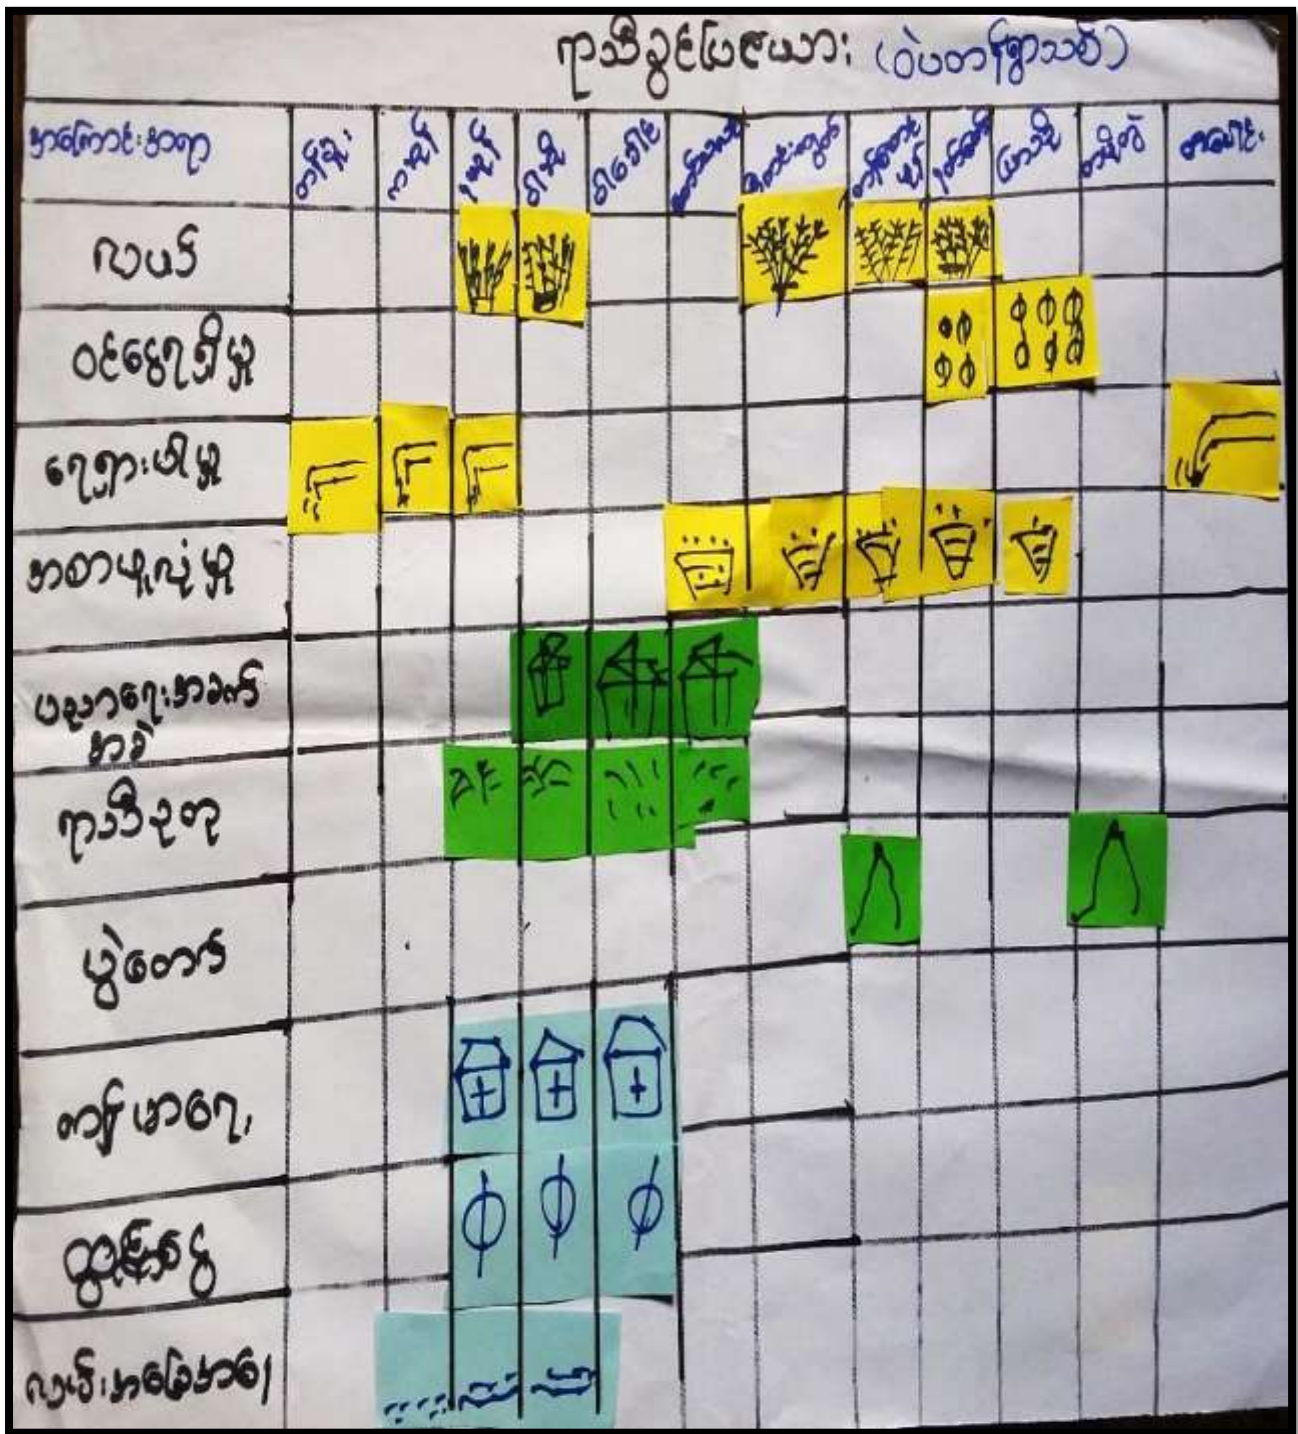 ရာသီခွင်ပြဇယား (ဝဲပတန်ရွာသစ်)
အကြောင်းအရာ တန်ခူး ကဆုန် နယုန် ဝါဆို ဝါခေါင် တော်သလင်း သီတင်းကျွတ် တန်ဆောင်မုန်း နတ်တော် ပြာသို တပို့တွဲ တပေါင်း
လယ်
ဝင်ငွေရရှိမှု
ရေရှားပါမှု
အစာဖူလုံမှု
ပညာရေးအခက်
အခဲ
ရာသီဥတု
ပွဲတော်
ကျန်းမာရေး
ထွက်ငွေ
လမ်းအခြေအနေ